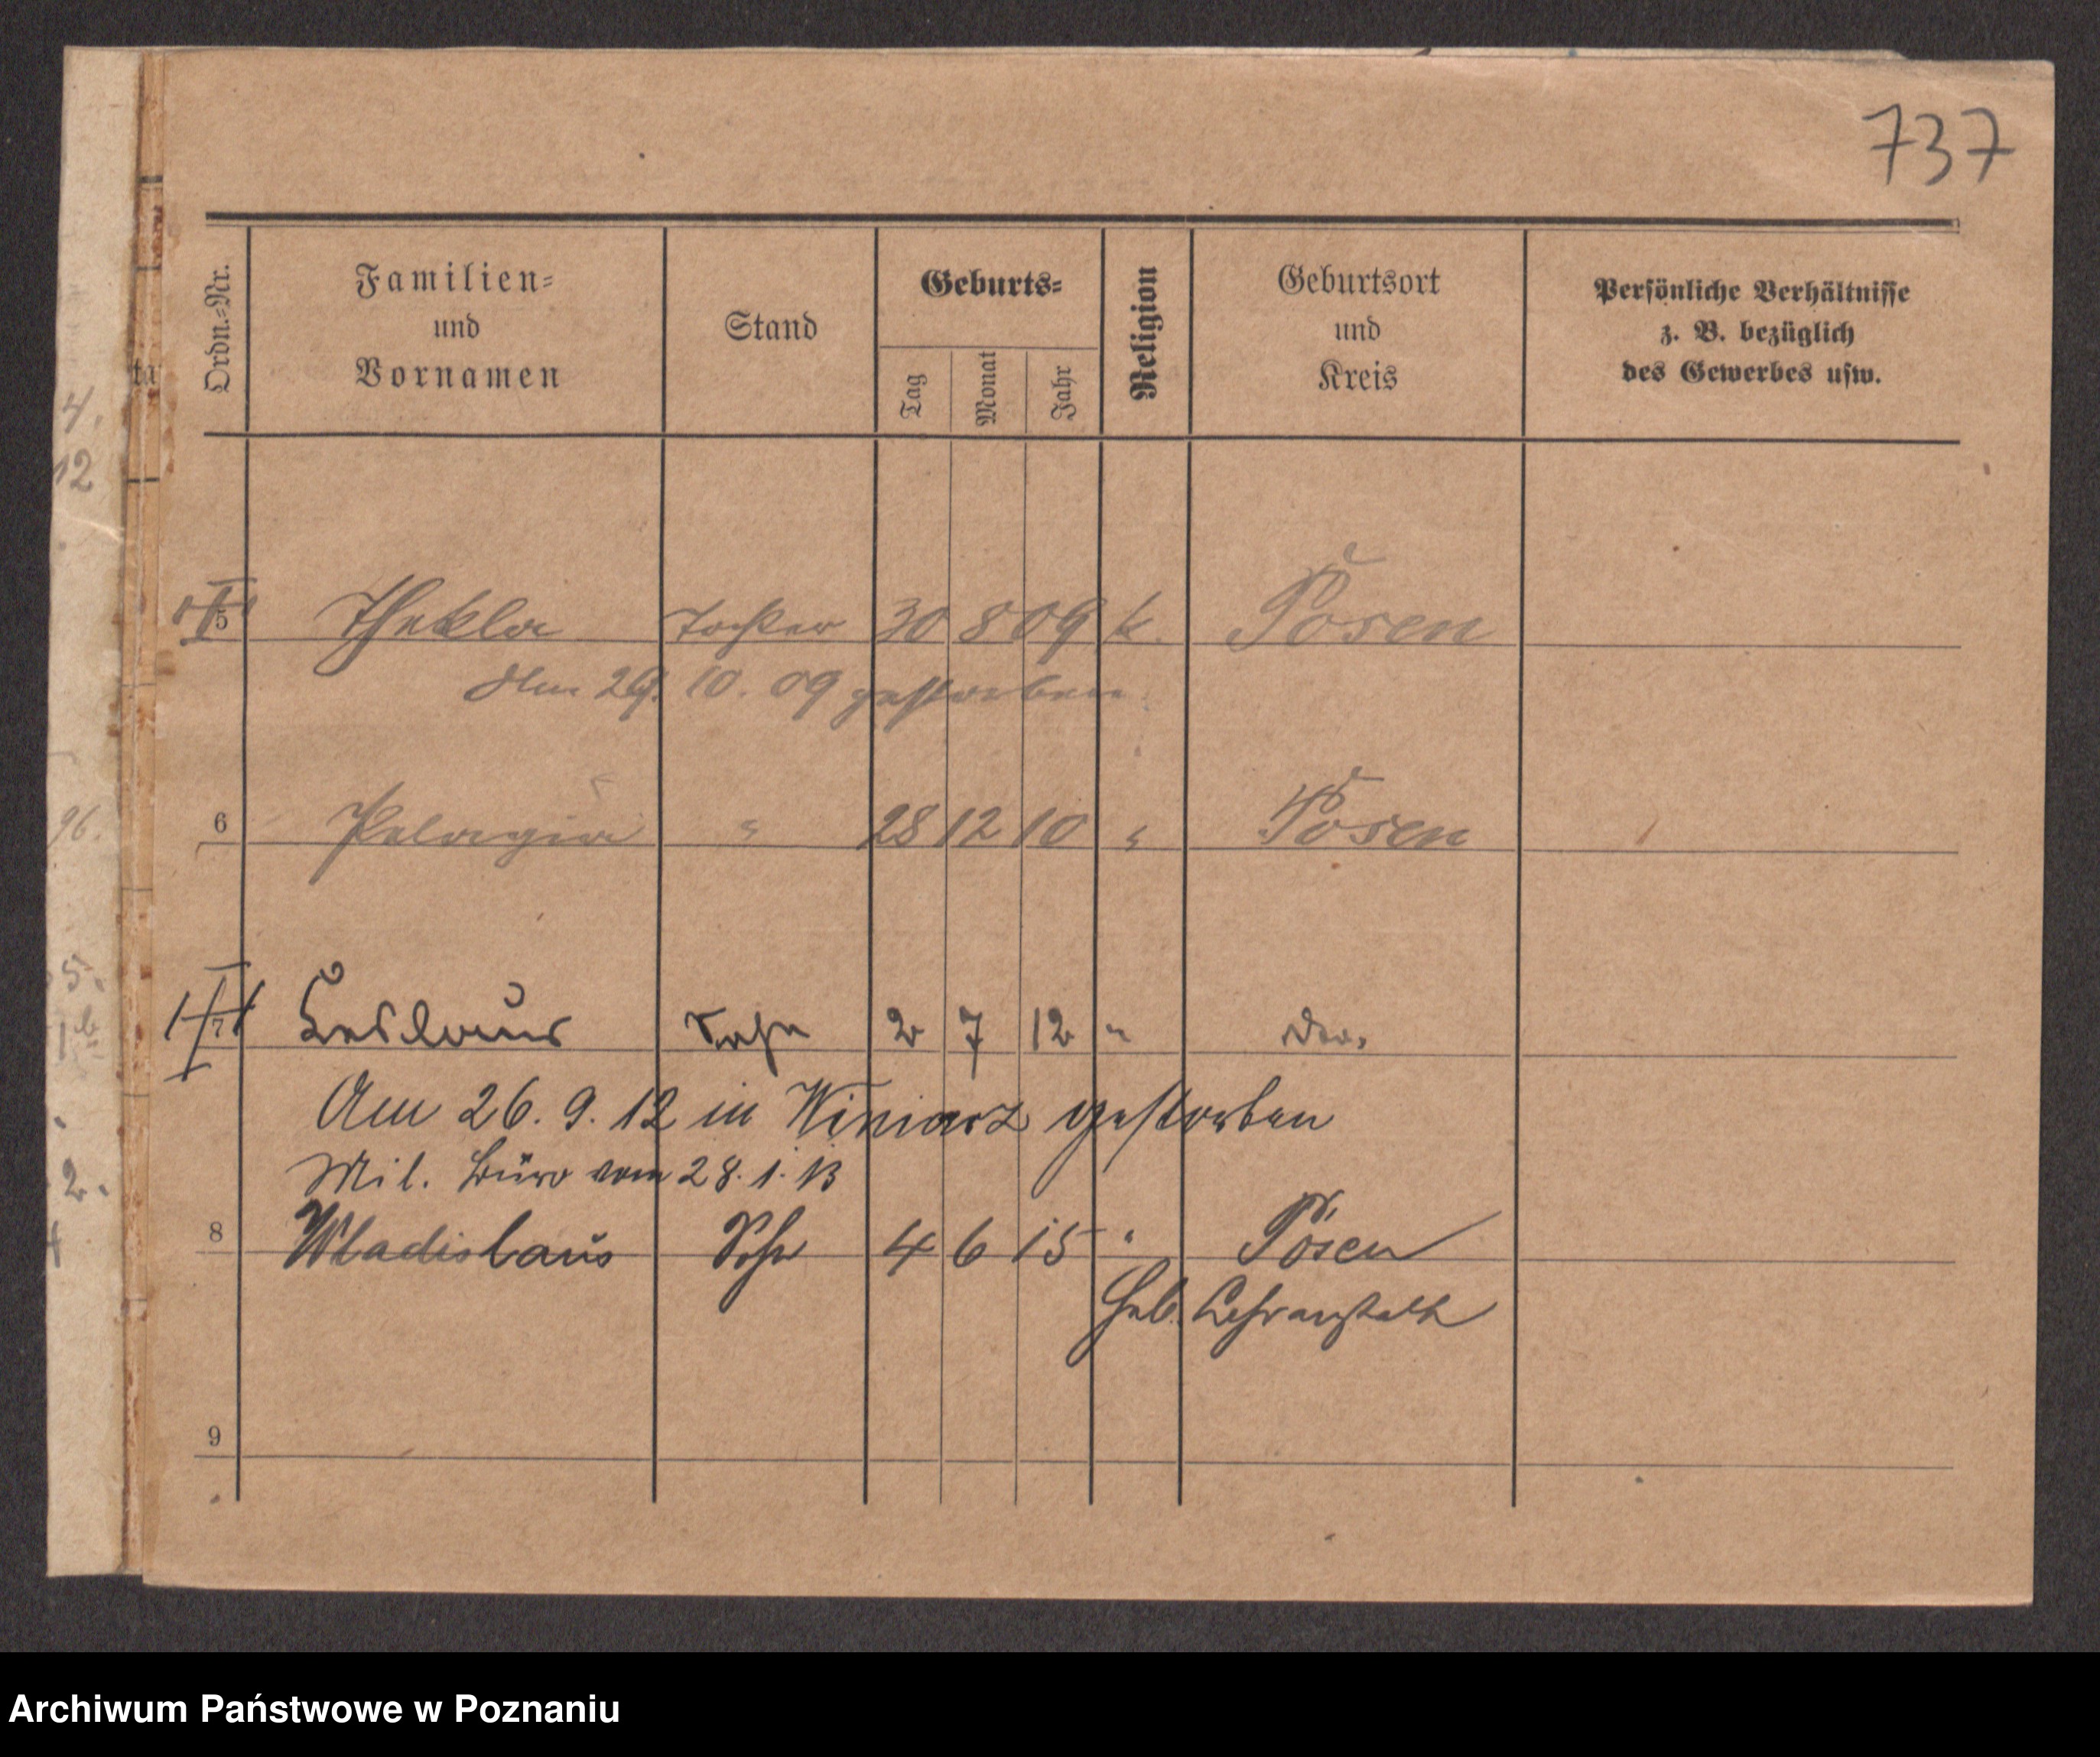 737
Ordn.-Nr.
Familien-
und
Vornamen
Stand
Geburts-
Tag
Monat
Jahr
Religion
Geburtsort
und
Kreis
Persönliche Verhältnisse
z. B. bezüglich
des Gewerbes usw.
5 Thekla Tochter 30 8 09 k. Posen
Am 29. 10. 09 gestorben
6 Pelagia " 28 12 10 " Posen
7 Leslaus Sohn 2 7 12 " do.
Am 26. 9. 12 in Winiary gestorben
Mil. Büro vom 28. 1. 13
8 Wladislaus Sohn 4 6 15 " Posen
Heb. Lehranstalt
9
Archiwum Państwowe w Poznaniu